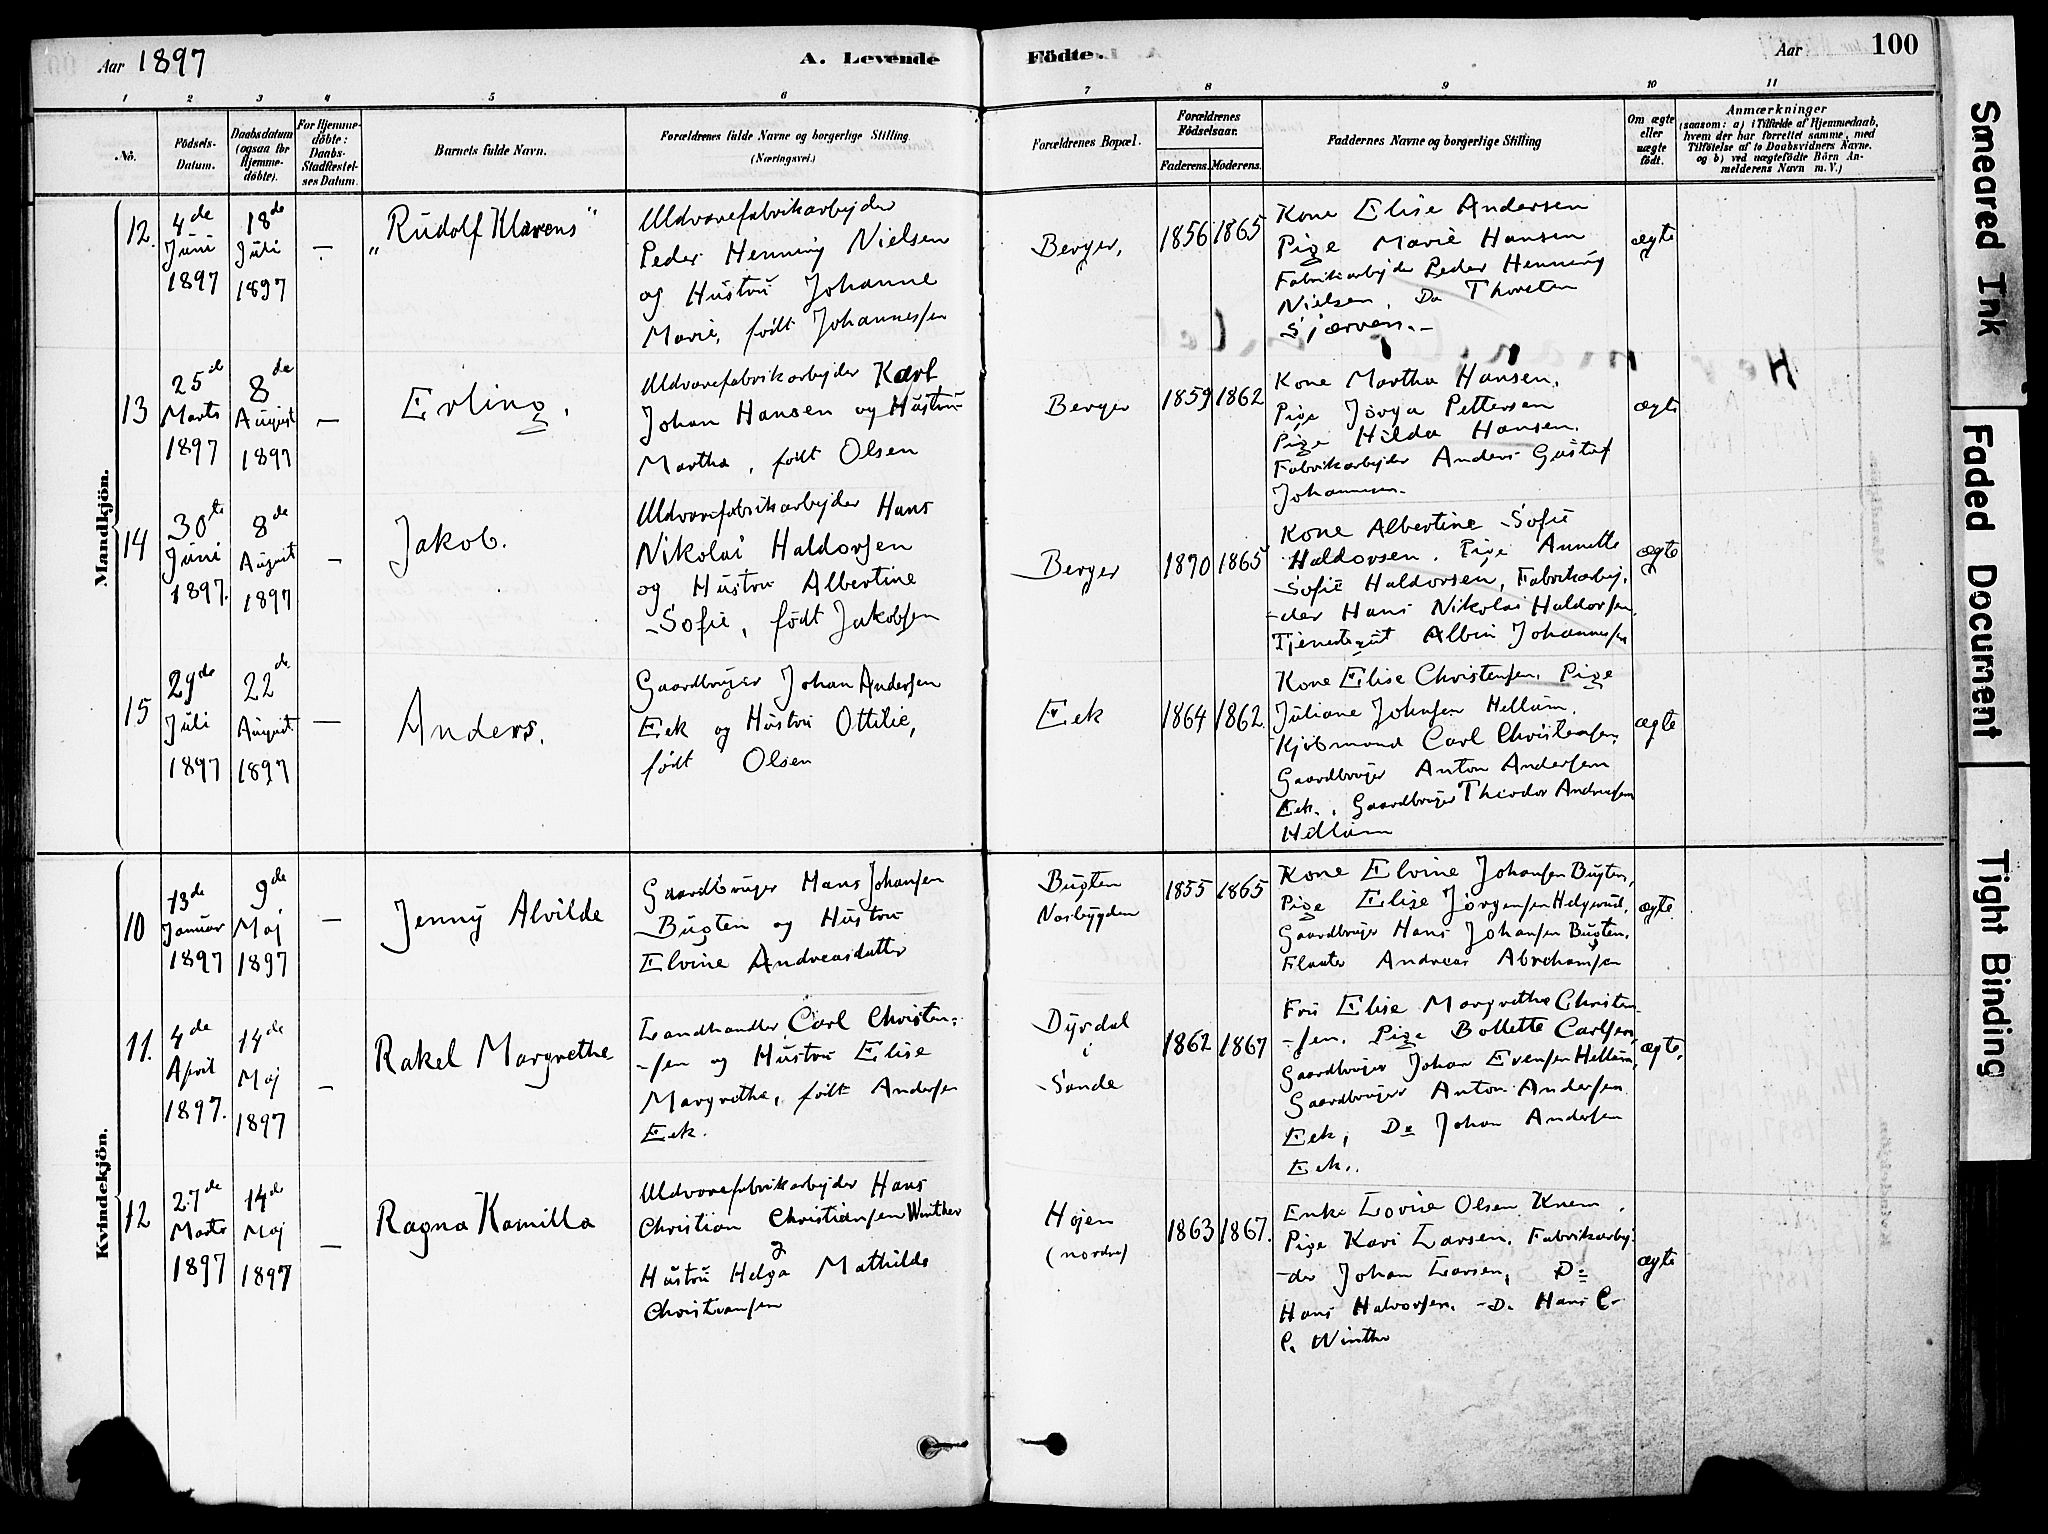 Aar 1897
A. Levende
Födte.
Aar
100
1 2 3 4 5 6 7 8 9 10 11
No.
Födsels-
Datum.
Daabsdatum
(ogsaa for
Hjemme-
döbte).
For Hjemme-
döbte:
Daabs-
Stadfæstel-
ses Datum.
Barnets fulde Navn.
Forældrenes fulde Navne og borgerlige Stilling.
(Næringsvei.)
Forældrenes Bopæl.
Forældrenes
Födselsaar.
Faderens. Moderens.
Faddernes Navne og borgerlige Stilling
Om ægte
eller
uægte
födt.
Anmærkninger
(saasom: a) i Tilfælde af Hjemmedaab,
hvem der har forrettet samme, med
Tilföielse af to Daabsvidners Navne,
og b) ved uægtefödte Börn An-
melderens Navn m. V.)
Mandkjön.
12.
4de
Juni
1897
18de
Juli
1897
—
"Rudolf Klarens"
Uldvarefabrikarbejder
Peder Henning Nielsen
og Hustru Johanne
Marie, født Johannessen
Berger,
1856 1865
Kone Elise Andersen
Pige Marie Hansen
Fabrikarbejder Peder Henning
Nielsen, Do Thorsten
Sjærven.—
ægte
13
25de
Marts
1897
8de
August
1897
—
Erling.
Uldvarefabrikarbejder Karl
Johan Hansen og Hustru
Martha, født Olsen
Berger
1859 1862
Kone Martha Hansen,
Pige Jørga Pettersen
Pige Hilda Hansen.
Fabrikarbejder Anders Gustaf
Johannesen.
ægte
14
30te
Juni
1897.
8de
August
1897
—
Jakob.
Uldvarefabrikarbejder Hans
Nikolai Haldorsen
og Hustru Albertine
Sofie, født Jakobsen
Berger
1870 1865
Kone Albertine Sofie
Haldorsen. Pige Annette
Sofie Haldorsen, Fabrikarbej-
der Hans Nikolai Haldorsen.
Tjenestegut Albin Johannessen
ægte
15
29de
Juli
1897
22de
August
1897
—
Anders.
Gaardbruger Johan Andersen
Eek og Hustru Ottilie,
født Olsen
Eek
1864 1862.
Kone Elise Christensen. Pige
Juliane Johnsen Hellum.
Kjøbmand Carl Christensen,
Gaardbruger Anton Andersen
Eek., Gaardbruger Theodor Andresen
Hellum
ægte
Kvindekjön.
10
13de
Januar
1897
9de
Maj
1897
—
Jenny Alvilde
Gaardbruger Hans Johansen
Bugten og Hustru
Elvine Andreasdatter
Bugten
Nosbygden
1855 1865
Kone Elvine Johansen Bugten,
Pige Elise Jørgensen Helgerud,
Gaardbruger Hans Johansen Bugten.
Fløater Andreas Abrahamsen
ægte
11.
4de
April
1897.
14de
Maj
1897
—
Rakel Margrethe
Landhandler Carl Christen-
sen og Hustru Elise
Margrethe, født Andersen
Eek.
Dyrdal
i
Sande
1862 1867
Fru Elise Margrethe Christen-
sen. Pige Bollette Carlsen,
Gaardbruger Johan Evensen Hellum,
Gaardbruger Anton Andersen
Eek, Do Johan Andersen
Eek..
ægte,
12
27de
Marts
1897
14de
Maj
1897
—
Ragna Kamilla
Uldvarefabrikarbejder Hans
Christian Christiansen Winther
og
Hustru Helga Mathilde
Christiansen
Højen
(nordre)
1863 1867.
Enke Lovise Olsen Knem,
Pige Kari Larsen, Fabrikarbej-
der Johan Larsen, Do
Hans Halvorsen. Do Hans C.
C. Winther
ægte
Smeared Ink
Faded Document
Tight Binding